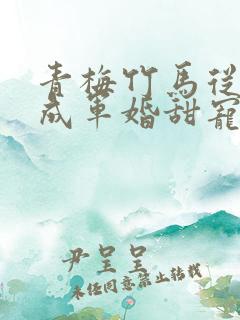 青梅竹馬從
成軍婚甜寵
尹呈呈
未經同意禁止轉載